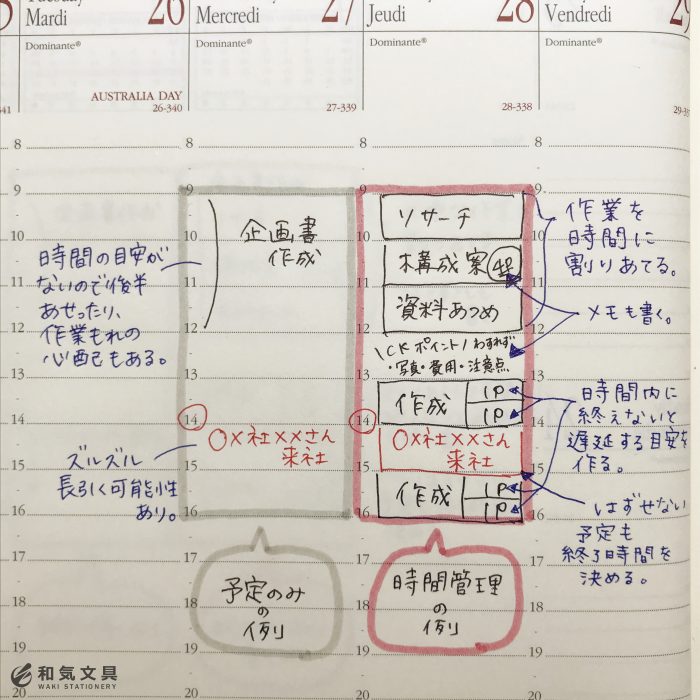 Mardi 26
Mercredi 27
Jeudi 28
Vendredi 29
Dominante®
Dominante®
Dominante®
Dominante®
AUSTRALIA DAY
26-340
27-339
28-338
8
8
8
8
9
9
9
9
10
10
10
10
11
11
11
11
12
12
12
12
13
13
13
13
14
14
14
14
15
15
15
15
16
16
16
16
17
17
17
17
18
18
18
18
19
19
19
19
20
20
20
20
時間の目安が
ないので後半
あせったり、
作業もれの
心配もある。
ズルズル
長引く可能性
あり。
企画書
作成
〇×社××さん
来社
予定のみ
の
例
リサーチ
構成案
資料あつめ
CKポイント!わすれず
・写真・費用・注意点
作成
1P
1P
〇×社××さん
来社
作成
1P
1P
時間管理
の
例
作業を
時間に
割りあてる。
メモも書く。
時間内に
終えないと
遅延する目安を
作る。
はずせない
予定も
終了時間を
決める。
和気文具
WAKI STATIONERY